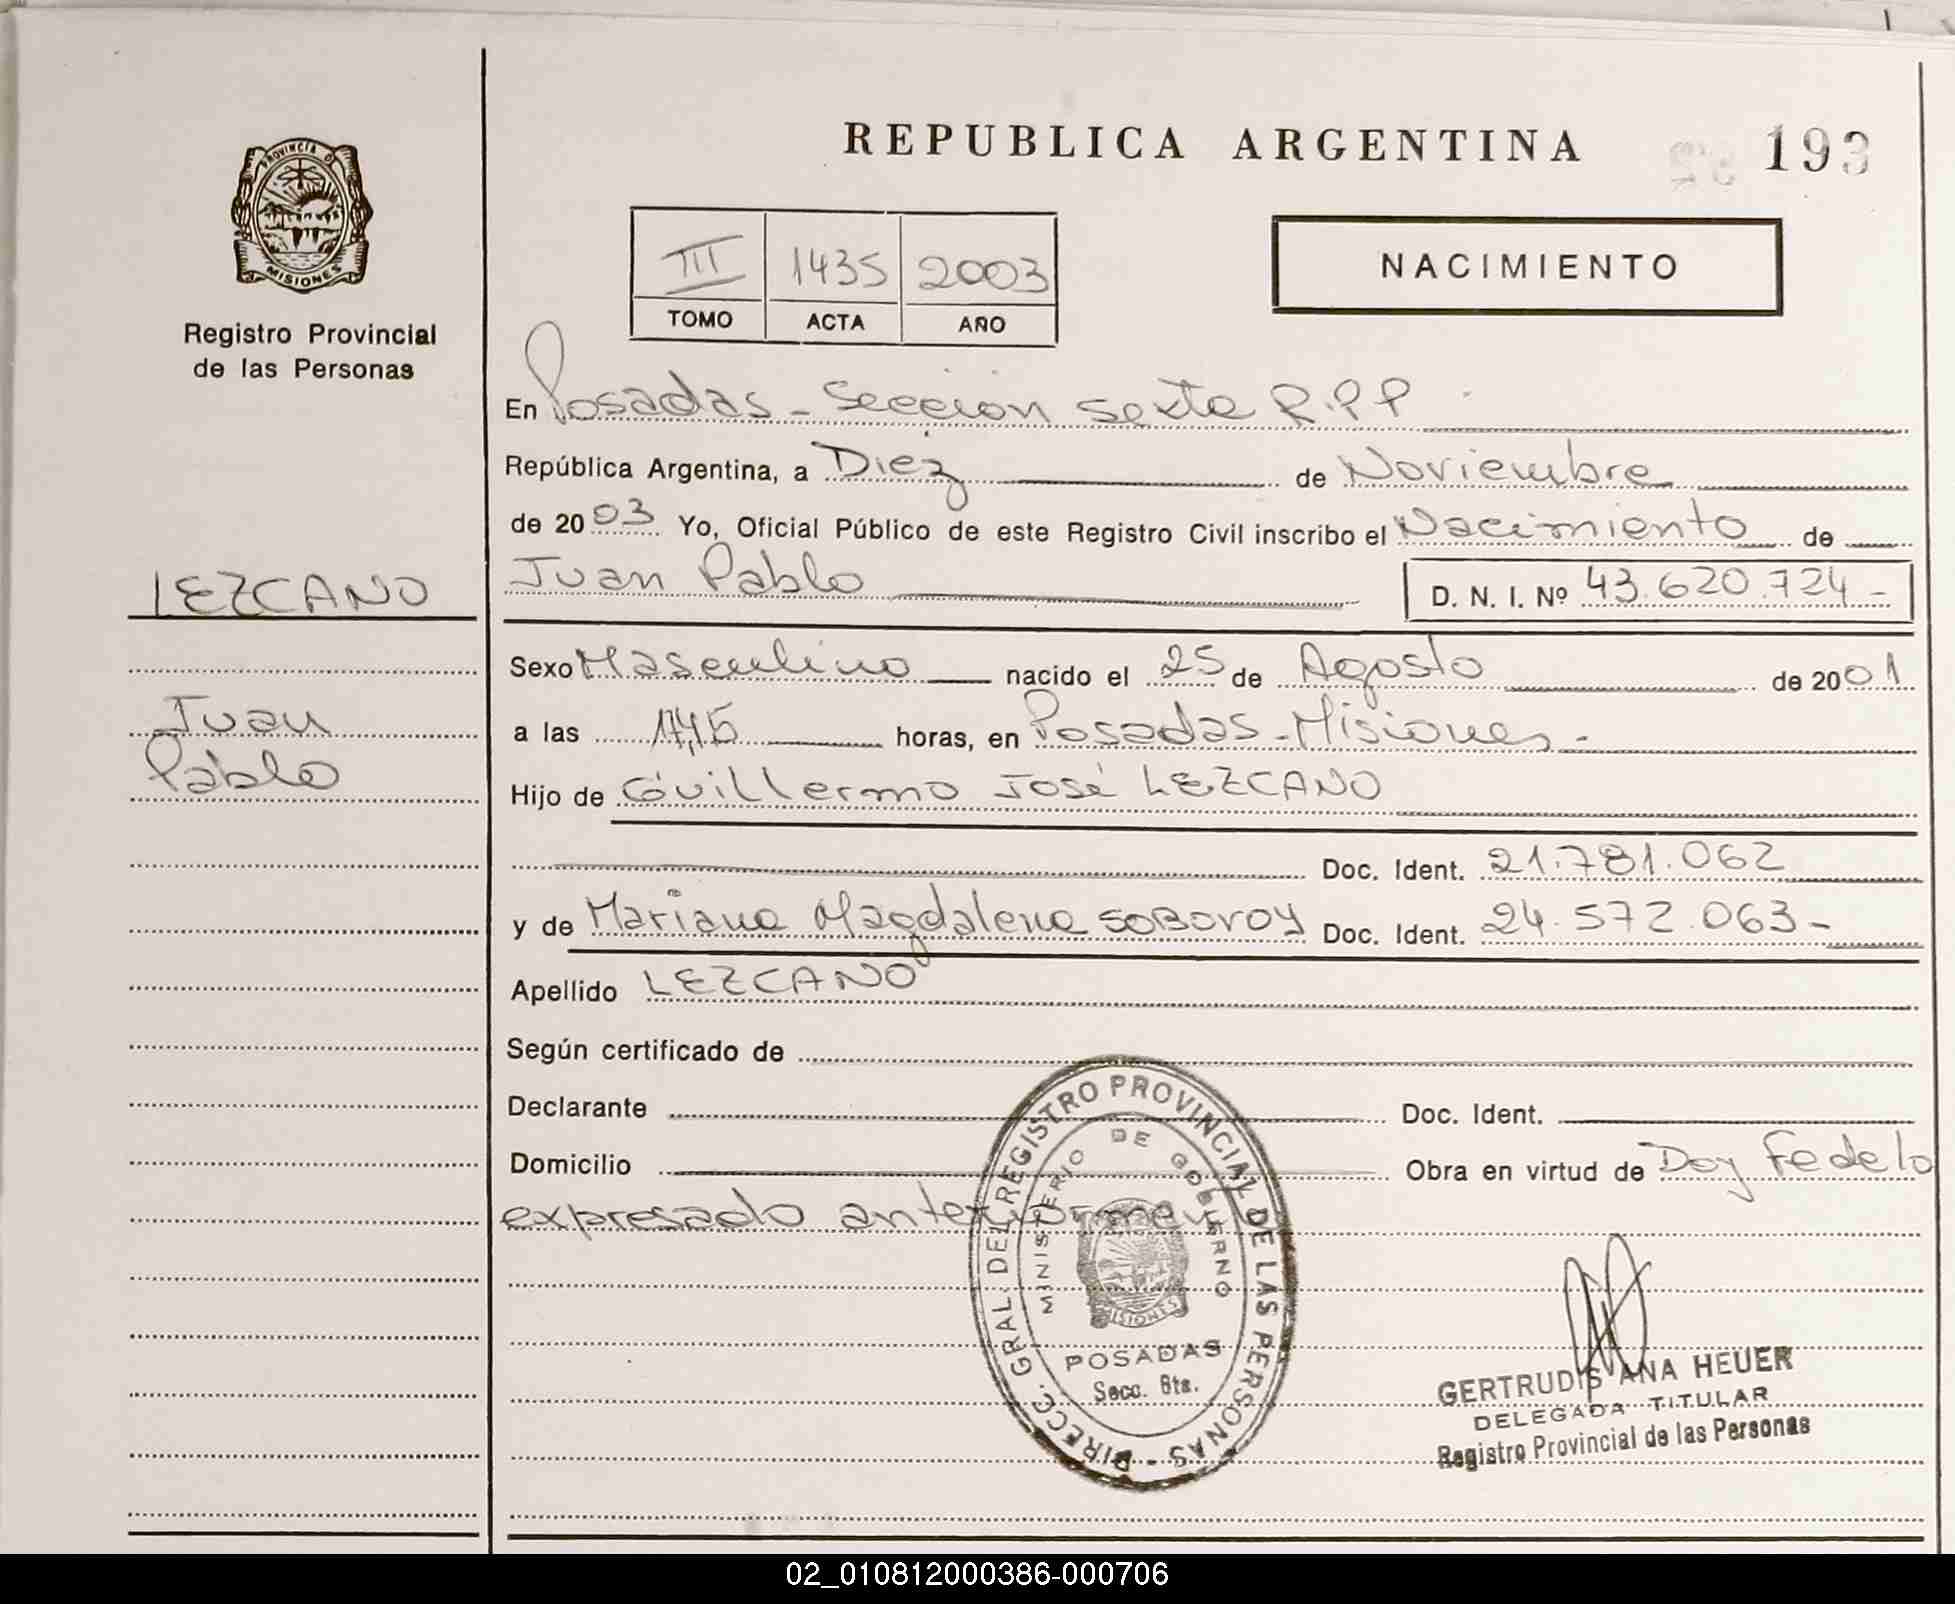 REPUBLICA ARGENTINA
193
PROVINCIA DE
MISIONES
Registro Provincial
de las Personas
III 1435 2003
TOMO ACTA AÑO
NACIMIENTO
En Posadas - Sección Sexta R.P.P
República Argentina, a Diez de Noviembre
de 2003 Yo, Oficial Público de este Registro Civil inscribo el Nacimiento de
Juan Pablo D. N. I. Nº 43.620.724-
LEZCANO
Juan
Pablo
Sexo Masculino nacido el 25 de Agosto de 2001
a las horas, en Posadas - Misiones -
Hijo de Guillermo José LEZCANO
Doc. Ident. 21.781.062
y de Mariana Magdalena SOBOROY Doc. Ident. 24.572.063-
Apellido LEZCANO
Según certificado de
Declarante Doc. Ident.
Domicilio Obra en virtud de Doy Fe de lo
expresado anteriormente
DIRECC. GRAL. DEL REGISTRO PROVINCIAL DE LAS PERSONAS -
MINISTERIO DE GOBIERNO
MISIONES
POSADAS
Secc. 6ta.
GERTRUDIS ANA HEUER
DELEGADA TITULAR
Registro Provincial de las Personas
02_010812000386-000706